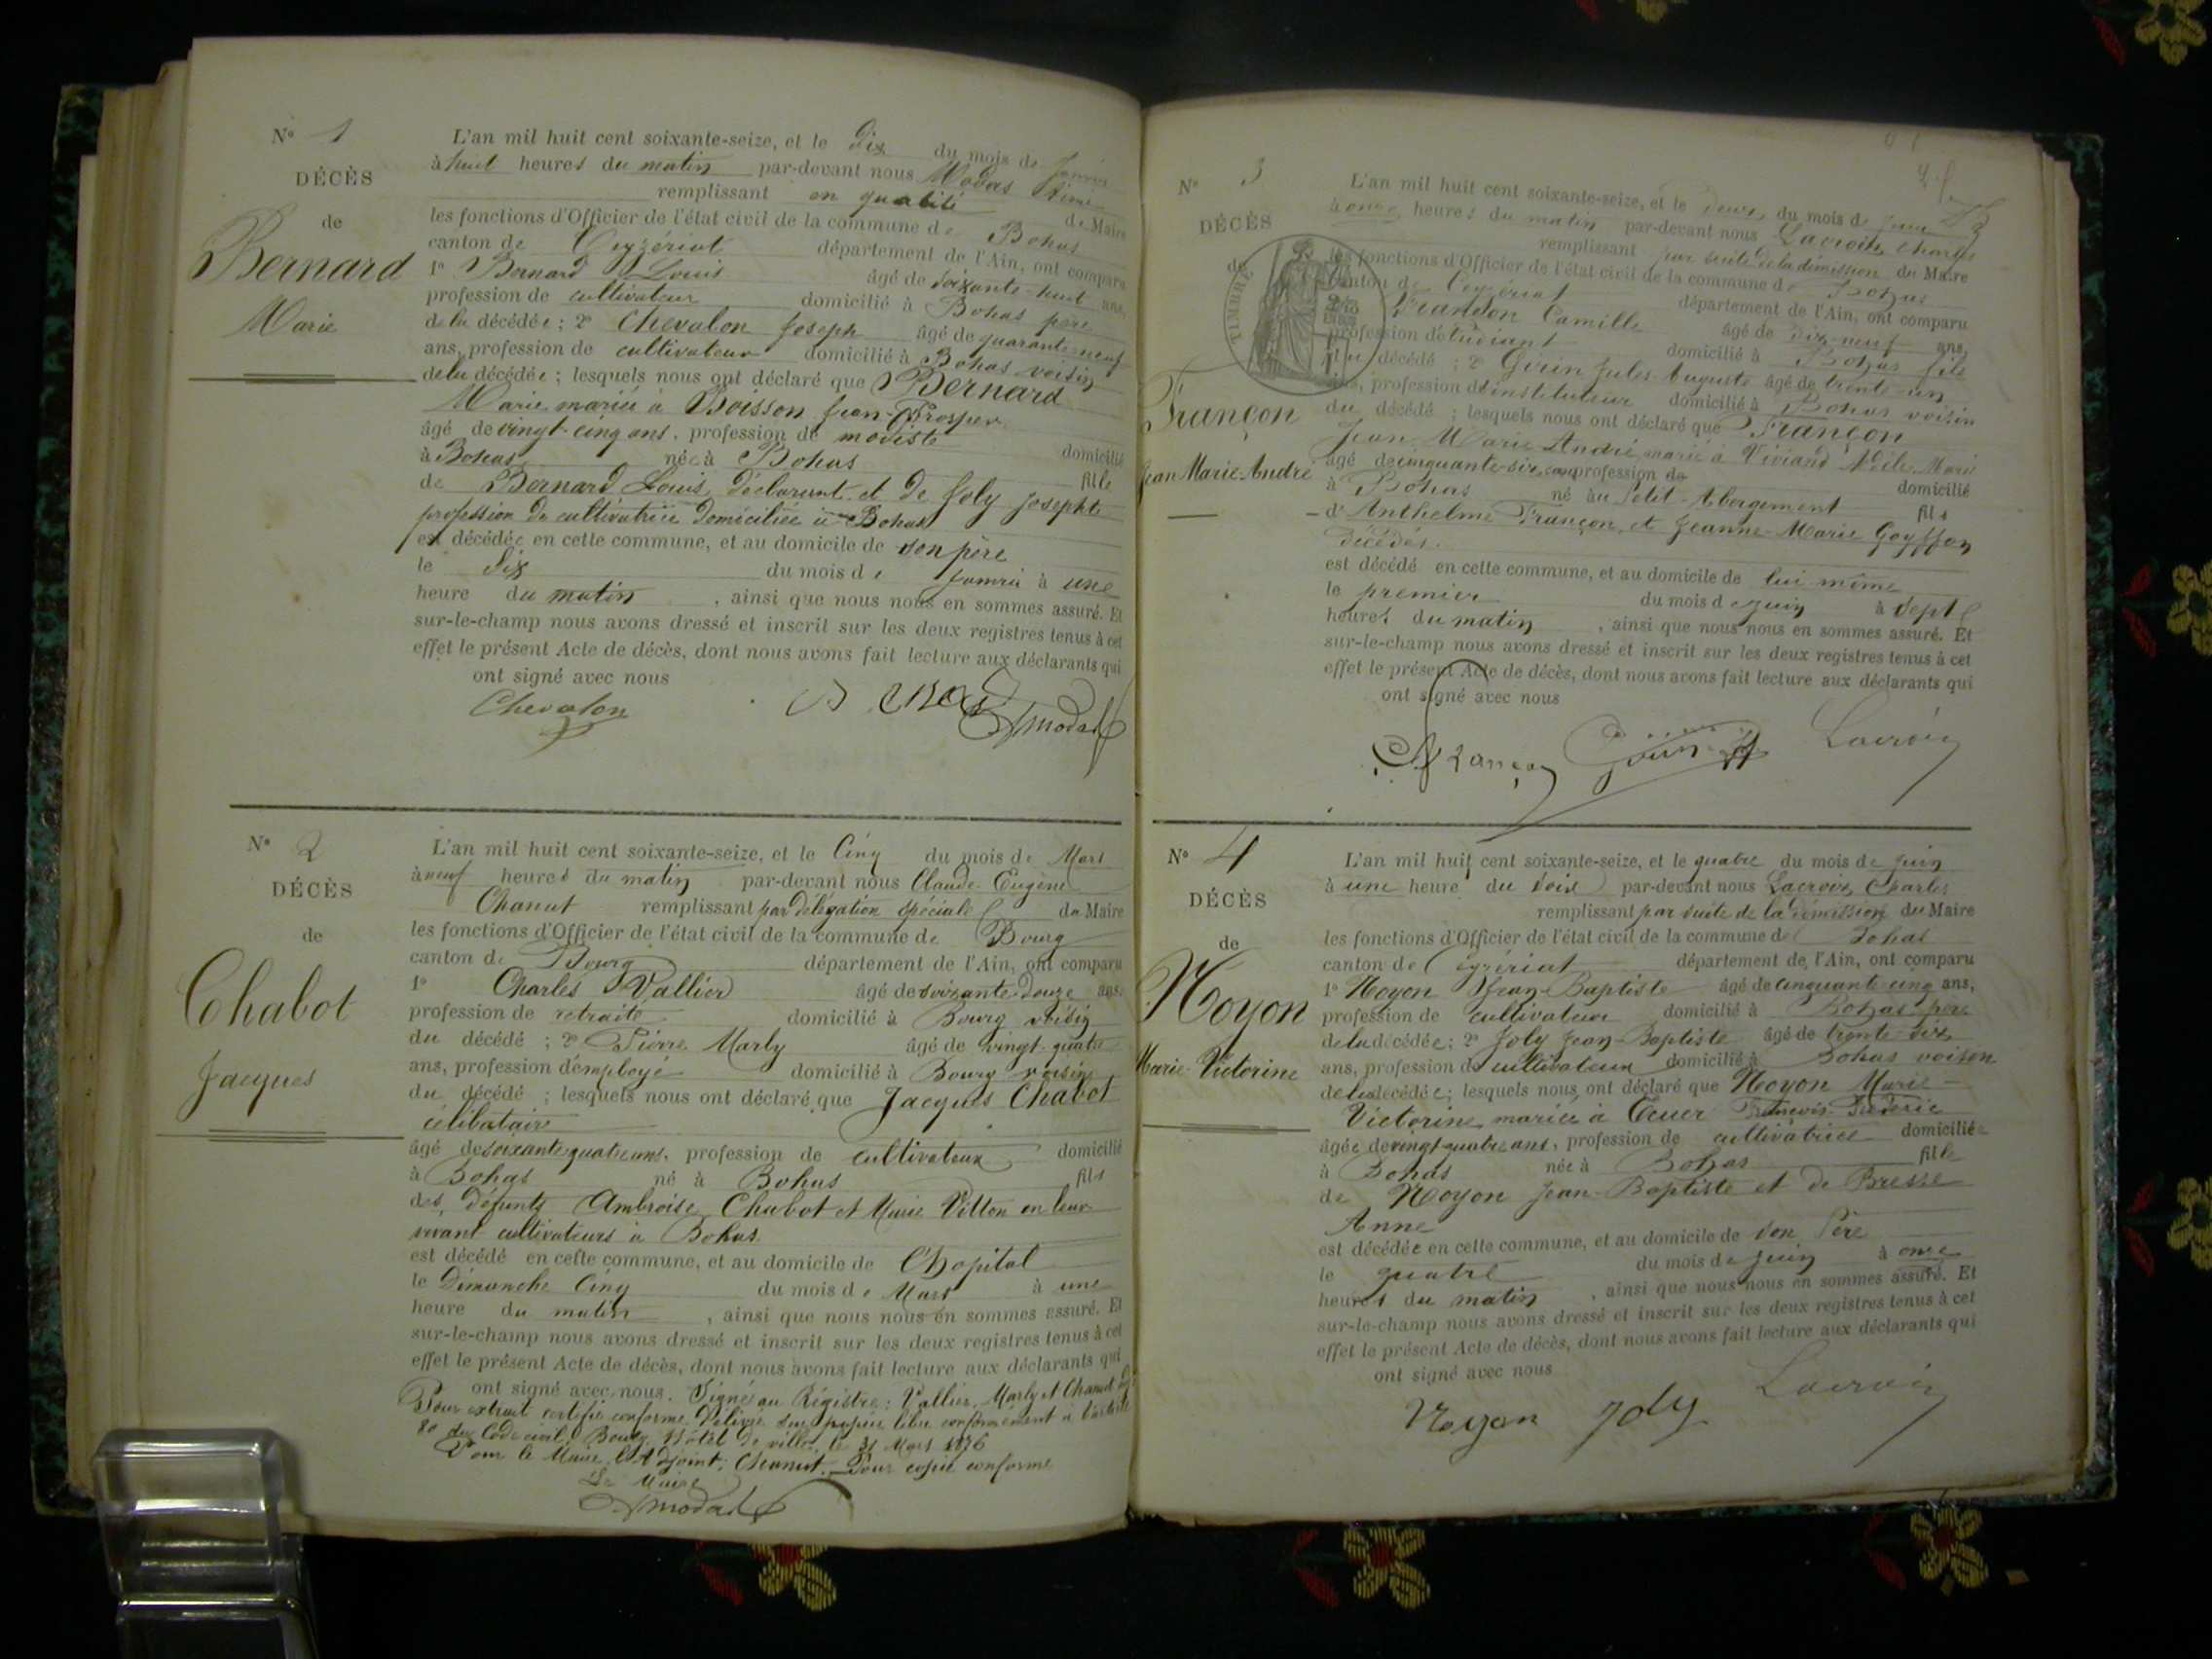 N° 1
DÉCÈS
de
Bernard
Marie
L'an mil huit cent soixante-seize, et le dix du mois de Janvier
à huit heures du matin par-devant nous Modas Aimé
remplissant en qualité de Maire
les fonctions d'Officier de l'état civil de la commune de Bohas
canton de Ceyzériat département de l'Ain, ont comparu
1° Bernard Louis âgé de soixante-huit ans,
profession de cultivateur domicilié à Bohas père
de la décédée ; 2° Chevalon Joseph âgé de quarante-neuf
ans, profession de cultivateur domicilié à Bohas voisin
de la décédée ; lesquels nous ont déclaré que Bernard
Marie mariée à Boisson Jean-Prosper
âgé de vingt-cinq ans, profession de modiste domicilié
à Bohas née à Bohas fille
de Bernard Louis, déclarant et de Joly Josephte
profession de cultivatrice domiciliée à Bohas
est décédée en cette commune, et au domicile de son père
le dix du mois de Janvier à une
heure du matin , ainsi que nous nous en sommes assuré. Et
sur-le-champ nous avons dressé et inscrit sur les deux registres tenus à cet
effet le présent Acte de décès, dont nous avons fait lecture aux déclarants qui
ont signé avec nous
Chevalon
N° 2
DÉCÈS
de
Chabot
Jacques
L'an mil huit cent soixante-seize, et le Cinq du mois de Mars
à neuf heures du matin par-devant nous Claude Eugène
Chanut remplissant par délégation spéciale du Maire
les fonctions d'Officier de l'état civil de la commune de Bourg
canton de Bourg département de l'Ain, ont comparu
1° Charles Vallier âgé de soixante-douze ans,
profession de retraité domicilié à Bourg voisin
du décédé ; 2° Pierre Marly âgé de vingt-quatre
ans, profession d'employé domicilié à Bourg voisin
du décédé ; lesquels nous ont déclaré que Jacques Chabot
célibataire
âgé de soixante quatre ans, profession de cultivateur domicilié
à Bohas né à Bohas fils
des défunts Ambroise Chabot et Marie Vitton en leur
vivant cultivateurs à Bohas
est décédé en cette commune, et au domicile de l'hopital
le Dimanche Cinq du mois de Mars à une
heure du matin , ainsi que nous nous en sommes assuré. Et
sur-le-champ nous avons dressé et inscrit sur les deux registres tenus à cet
effet le présent Acte de décès, dont nous avons fait lecture aux déclarants qui
ont signé avec nous. Signé au Régistre : Vallier, Marly et Chanut
Pour extrait certifié conforme Délivré sur papier libre conformément à l'article
80 du Code civil. Bourg Hôtel de ville, le 31 Mars 1876
Pour le Maire, l'Adjoint, Chanut. Pour copie conforme
Le Maire
N° 3
DÉCÈS
de
TIMBRE
Françon
Jean Marie-André
L'an mil huit cent soixante-seize, et le deux du mois de Juin
à onze heures du matin par-devant nous Lacroix Charles
remplissant par suite de la démission du Maire
les fonctions d'Officier de l'état civil de la commune de Bohas
canton de Ceyzériat département de l'Ain, ont comparu
Françon Camille âgé de dix-neuf ans,
profession d'étudiant domicilié à Bohas fils
du décédé ; 2° Girin Jules-Auguste âgé de trente-un
ans, profession d'instituteur domicilié à Bohas voisin
du décédé ; lesquels nous ont déclaré que Françon
Jean Marie André marié à Viviand Adèle Marie
âgé de cinquante-six ans profession de domicilié
à Bohas né au Petit-Abergement fils
d'Anthelme Françon et Jeanne-Marie Goyffon
décédés.
est décédé en cette commune, et au domicile de lui même
le premier du mois de Juin à sept
heures du matin , ainsi que nous nous en sommes assuré. Et
sur-le-champ nous avons dressé et inscrit sur les deux registres tenus à cet
effet le présent Acte de décès, dont nous avons fait lecture aux déclarants qui
ont signé avec nous
Françon Girin Lacroix
N° 4
DÉCÈS
de
Noyon
Marie-Victorine
L'an mil huit cent soixante-seize, et le quatre du mois de Juin
à une heure du soir par-devant nous Lacroix Charles
remplissant par suite de la démission du Maire
les fonctions d'Officier de l'état civil de la commune de Bohas
canton de Ceyzériat département de l'Ain, ont comparu
1° Noyon Jean-Baptiste âgé de cinquante cinq ans,
profession de cultivateur domicilié à Bohas père
de la décédée ; 2° Joly Jean-Baptiste âgé de trente-six
ans, profession de cultivateur domicilié à Bohas voisin
de la décédée ; lesquels nous ont déclaré que Noyon Marie-
Victorine mariée à François Fréderic
âgée de vingt quatre ans, profession de cultivatrice domiciliée
à Bohas née à Bohas fille
de Noyon Jean-Baptiste et de Bresse
Anne
est décédée en cette commune, et au domicile de son Père
le quatre du mois de Juin à onze
heures du matin , ainsi que nous nous en sommes assuré. Et
sur-le-champ nous avons dressé et inscrit sur les deux registres tenus à cet
effet le présent Acte de décès, dont nous avons fait lecture aux déclarants qui
ont signé avec nous
Noyon Joly Lacroix